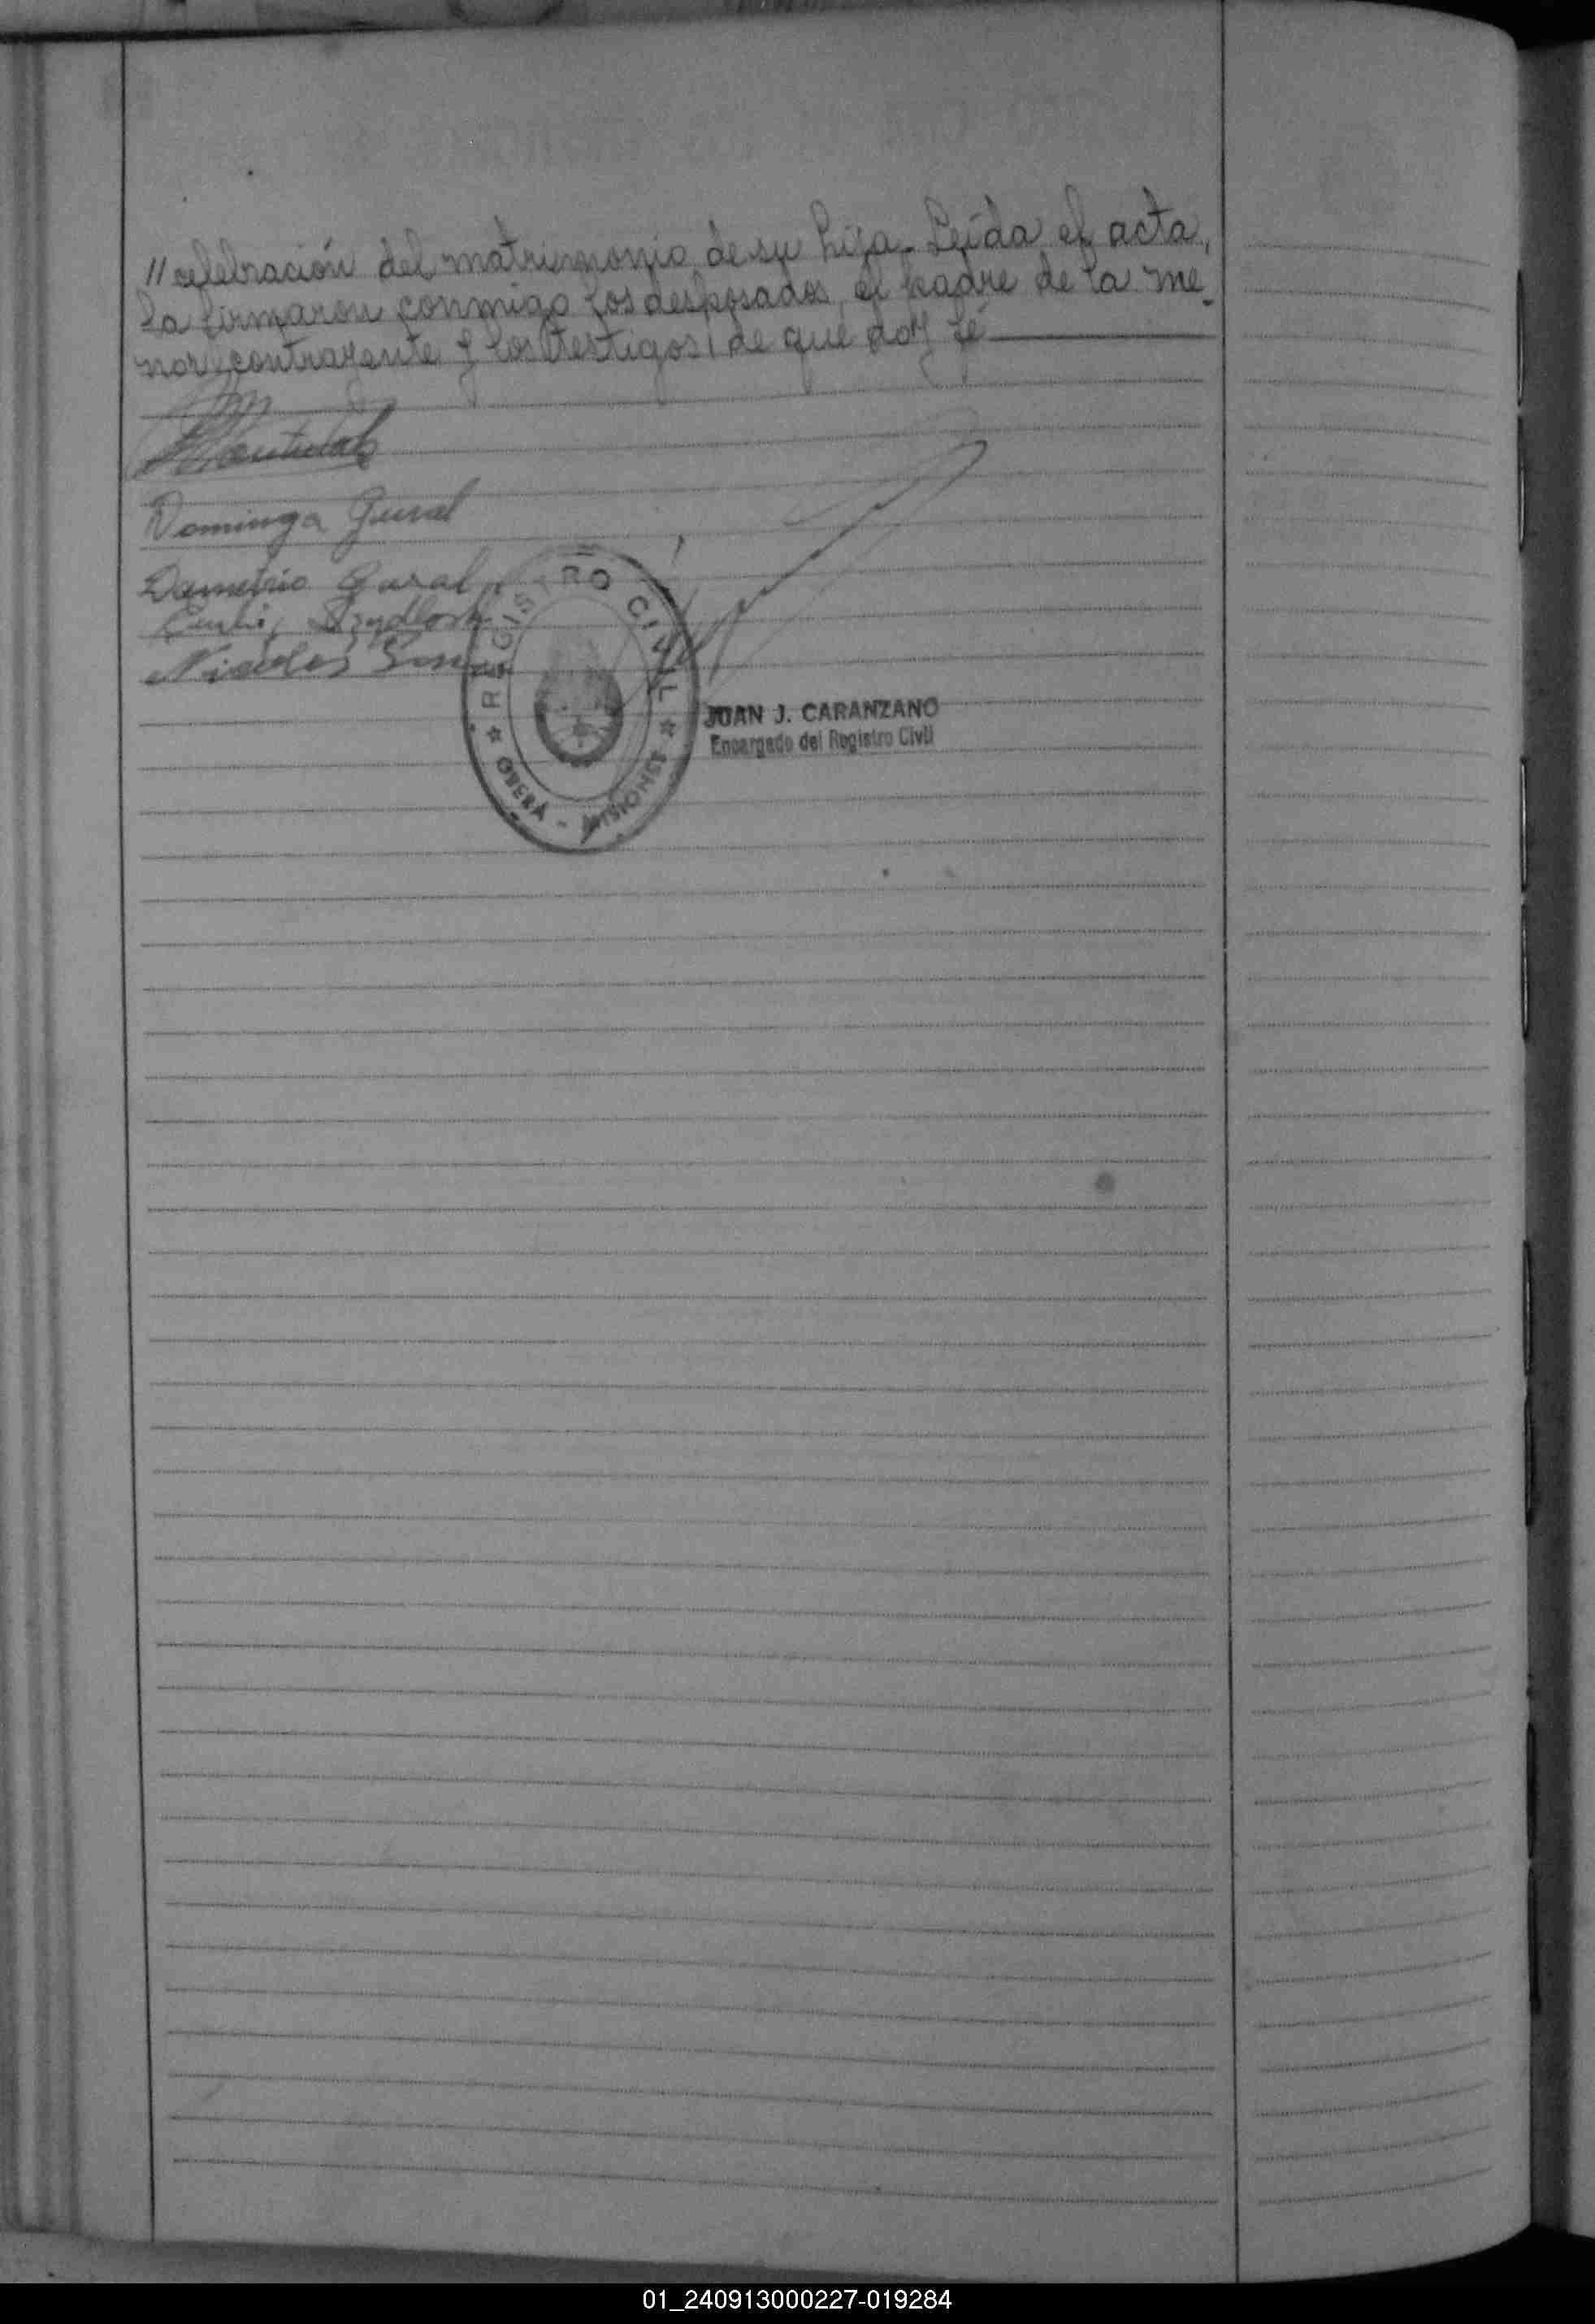 // celebración del matrimonio de su hija. Leída el acta,
la firmaron conmigo los desposados, el padre de la me-
nor contrayente y los testigos, de que doy fé
Dominga Gural
Demetrio Gural
Nicolas
REGISTRO CIVIL
OBERÁ - MISIONES
JUAN J. CARANZANO
Encargado del Registro Civil
01_240913000227-019284